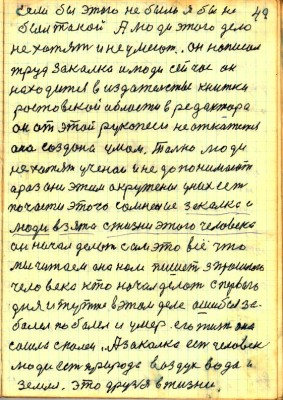 если бы этого не было я бы не 49
был такой А люди этого дело
не хотят и не умеют. он написал
труд закалка и люди сейчас он
находится в издательстве книжки
ростовской области в редактора
он от этой рукописи не откажется
она создана умом. Только люди
не хотят ученой и не допонимают
а раз они этим окружены у них ест
по части этого сомнение закалка и
люди взята с жизни этого человека
он начал делат сам это всё что
мы читаем она нам пишет з прошлого
человека кто начал делат с первого
дня и тут же в этом деле ошибся за-
болел поболел и умер его жизн она
сошла с колеи. А закалка ест человек
люди ест природа воздух вода и
земля. Это друзя в жизни.